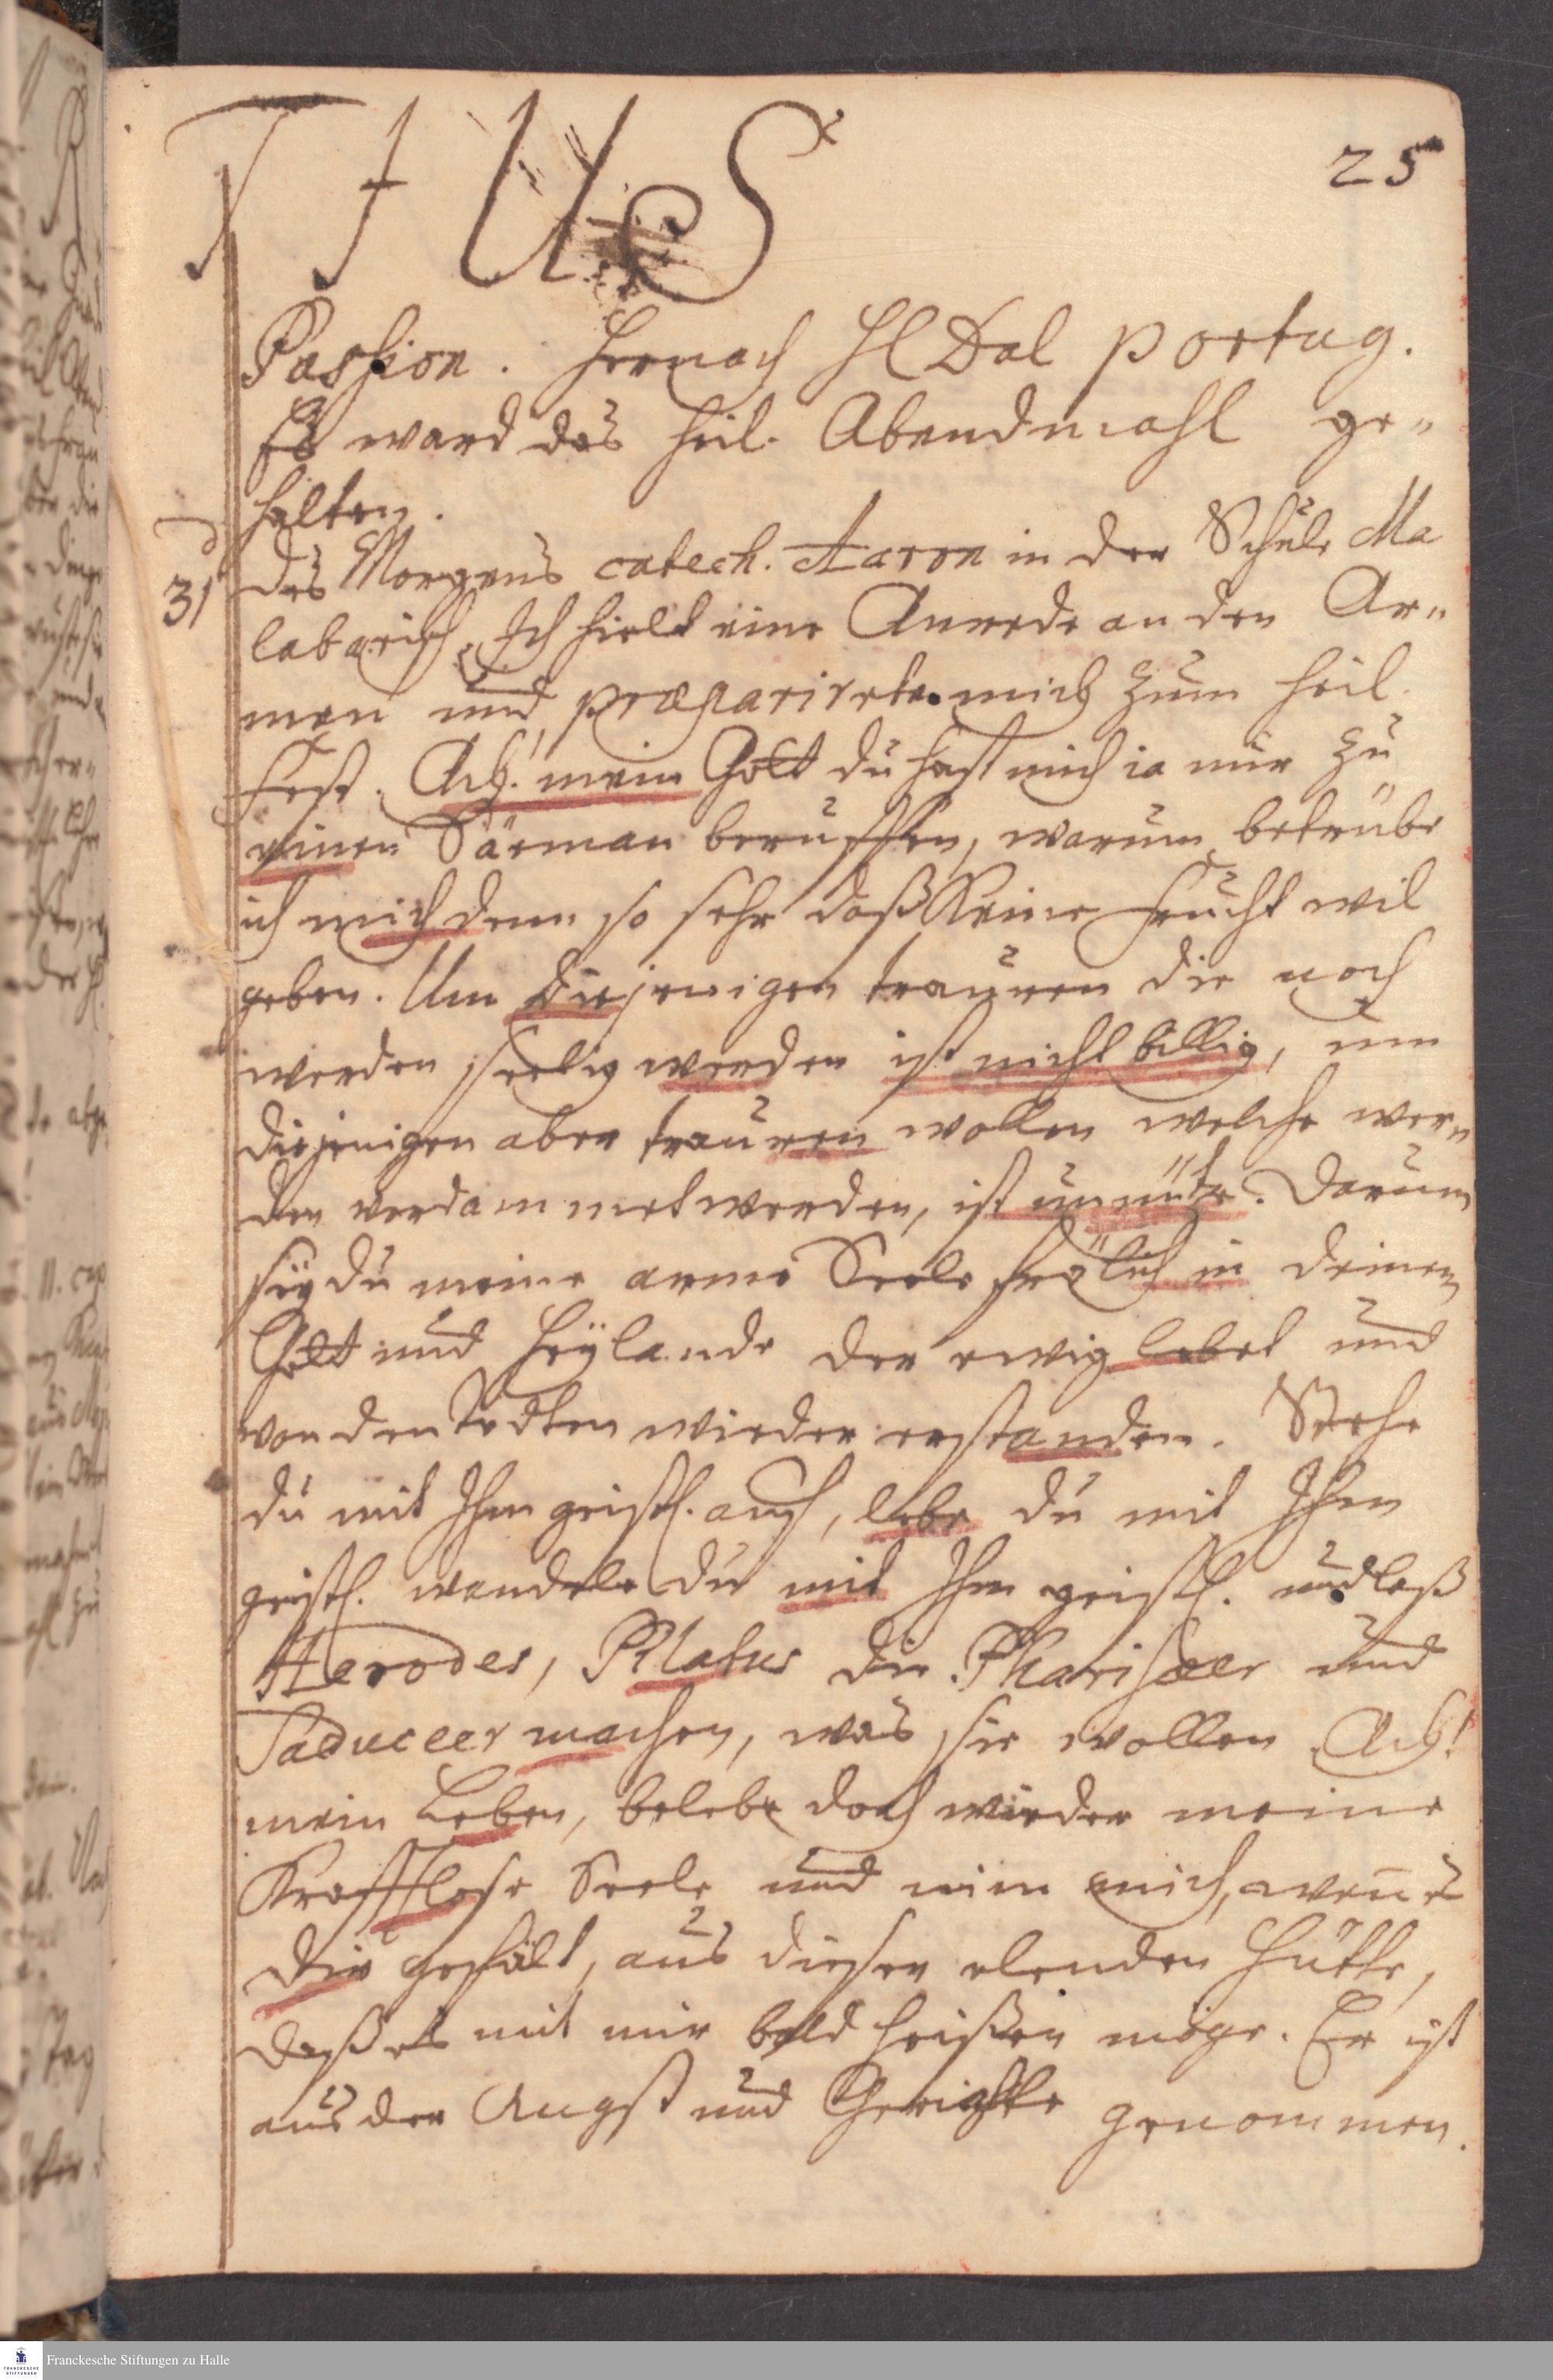 TIUS
25
Passion. Hernach H Dal portug.
Es ward das heil. Abendmahl ge„
halten.
31 des Morgens catech. Aaron in der Schule Ma
labarisch, Ich hielt eine Anrede an den Ar„
men und præparirete mich zum heil.
Fest. Ach! mein Gott du hast mich ia nur zu
einen Säeman beruffen, warum betrübe
ich mich denn so sehr daß Keine Frucht wil
geben. Um diejenigen trauren die noch
werden seelig werden ist nicht billig, um
diejenigen aber trauren wollen welche wer„
den verdammet werden, ist unnütze. Darum
sey du meine arme Seele frölich in deinem
Gott und Heÿlande der ewig lebet und
von den Todten wieder erstanden. Stehe
du mit Ihm geistl. auf, lebe du mit Ihm
geistl. wandele du mit Ihm geistl. und laß
Herodes, Pilatus die Pharisæer und
Saduceer machen, was sie wollen. Ach!
mein Leben, belebe doch wieder meine
Krafftlose Seele und nim mich, wenn es
dir gefält, aus dieser elenden Hütte,
daß es mit mir bald heißen möge. Er ist
aus der Angst und Gerichte genommen.
Franckesche Stiftungen zu Halle